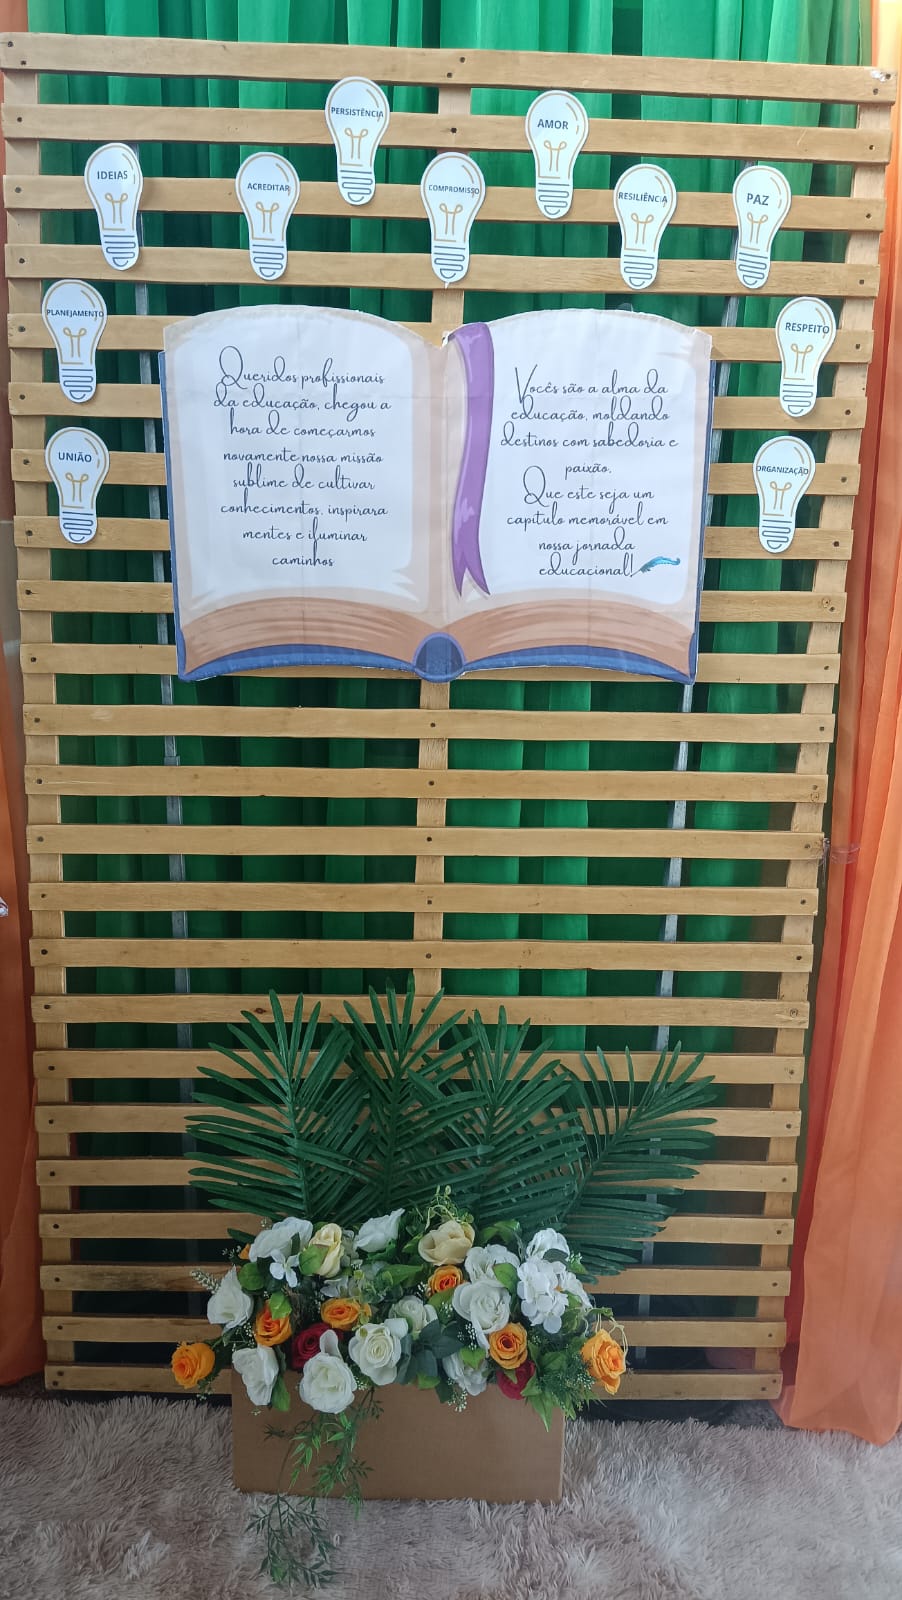 PERSISTÊNCIA
AMOR
IDEIAS
ACREDITAR
COMPROMISSO
RESILIÊNCIA
PAZ
PLANEJAMENTO
RESPEITO
UNIÃO
ORGANIZAÇÃO
Queridos profissionais
da educação, chegou a
hora de começarmos
novamente nossa missão
sublime de cultivar
conhecimentos, inspirara
mentes e iluminar
caminhos
Vocês são a alma da
educação, moldando
destinos com sabedoria e
paixão.
Que este seja um
capítulo memorável em
nossa jornada
educacional!